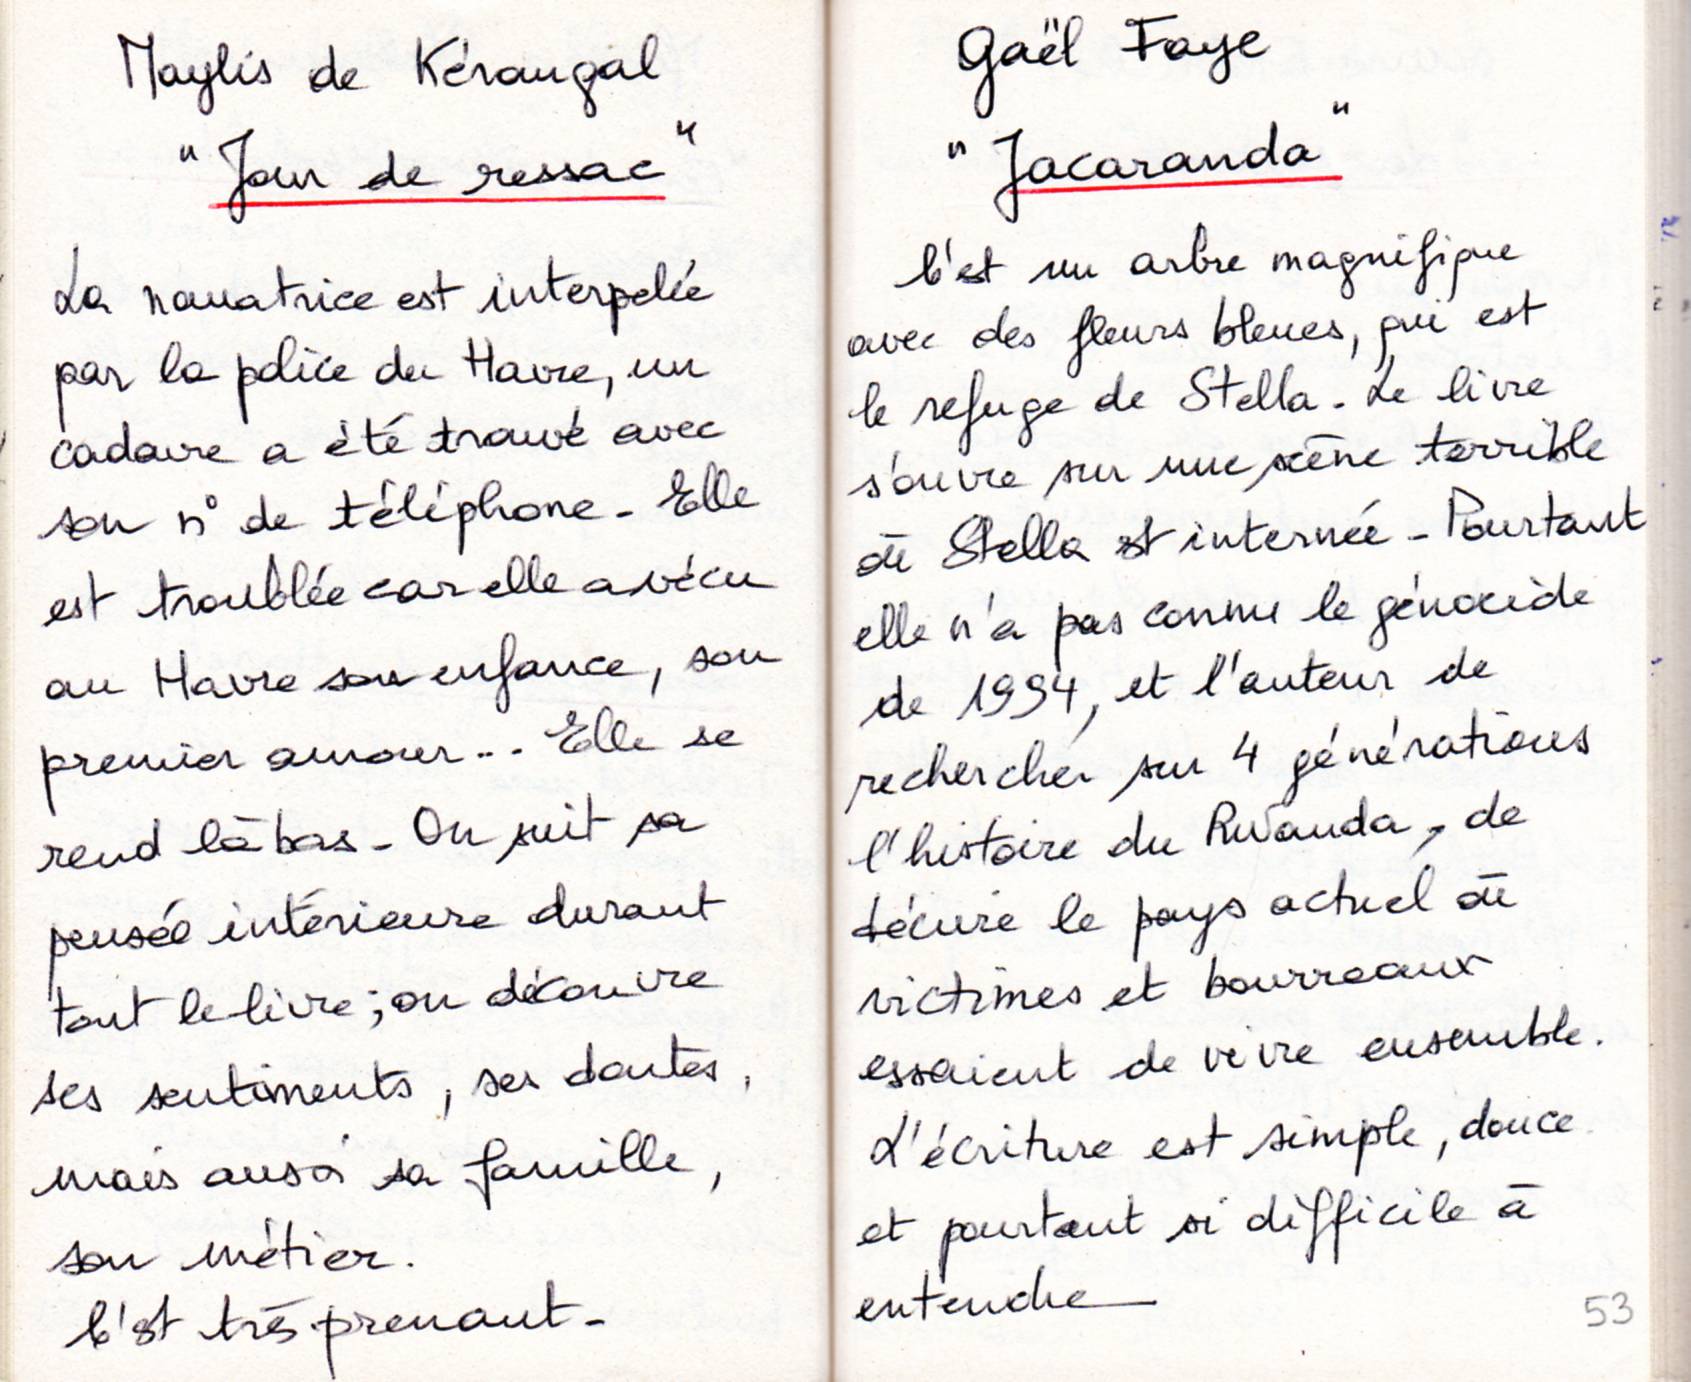 Maylis de Kérangal
"Jour de ressac"
La narratrice est interpelée
par la police du Havre, un
cadavre a été trouvé avec
son n° de téléphone - Elle
est troublée car elle a vécu
au Havre son enfance, son
premier amour... Elle se
rend là bas - On suit sa
pensée intérieure durant
tout le livre ; on découvre
ses sentiments, ses doutes,
mais aussi sa famille,
son métier.
C'est très prenant -
Gaël Faye
"Jacaranda"
C'est un arbre magnifique
avec des fleurs bleues, qui est
le refuge de Stella - Le livre
s'ouvre sur une scène terrible
où Stella est internée - Pourtant
elle n'a pas connu le génocide
de 1994, et l'auteur de
rechercher sur 4 générations
l'histoire du Rwanda, de
décrire le pays actuel où
victimes et bourreaux
essaient de vivre ensemble.
L'écriture est simple, douce
et pourtant si difficile à
entendre
53